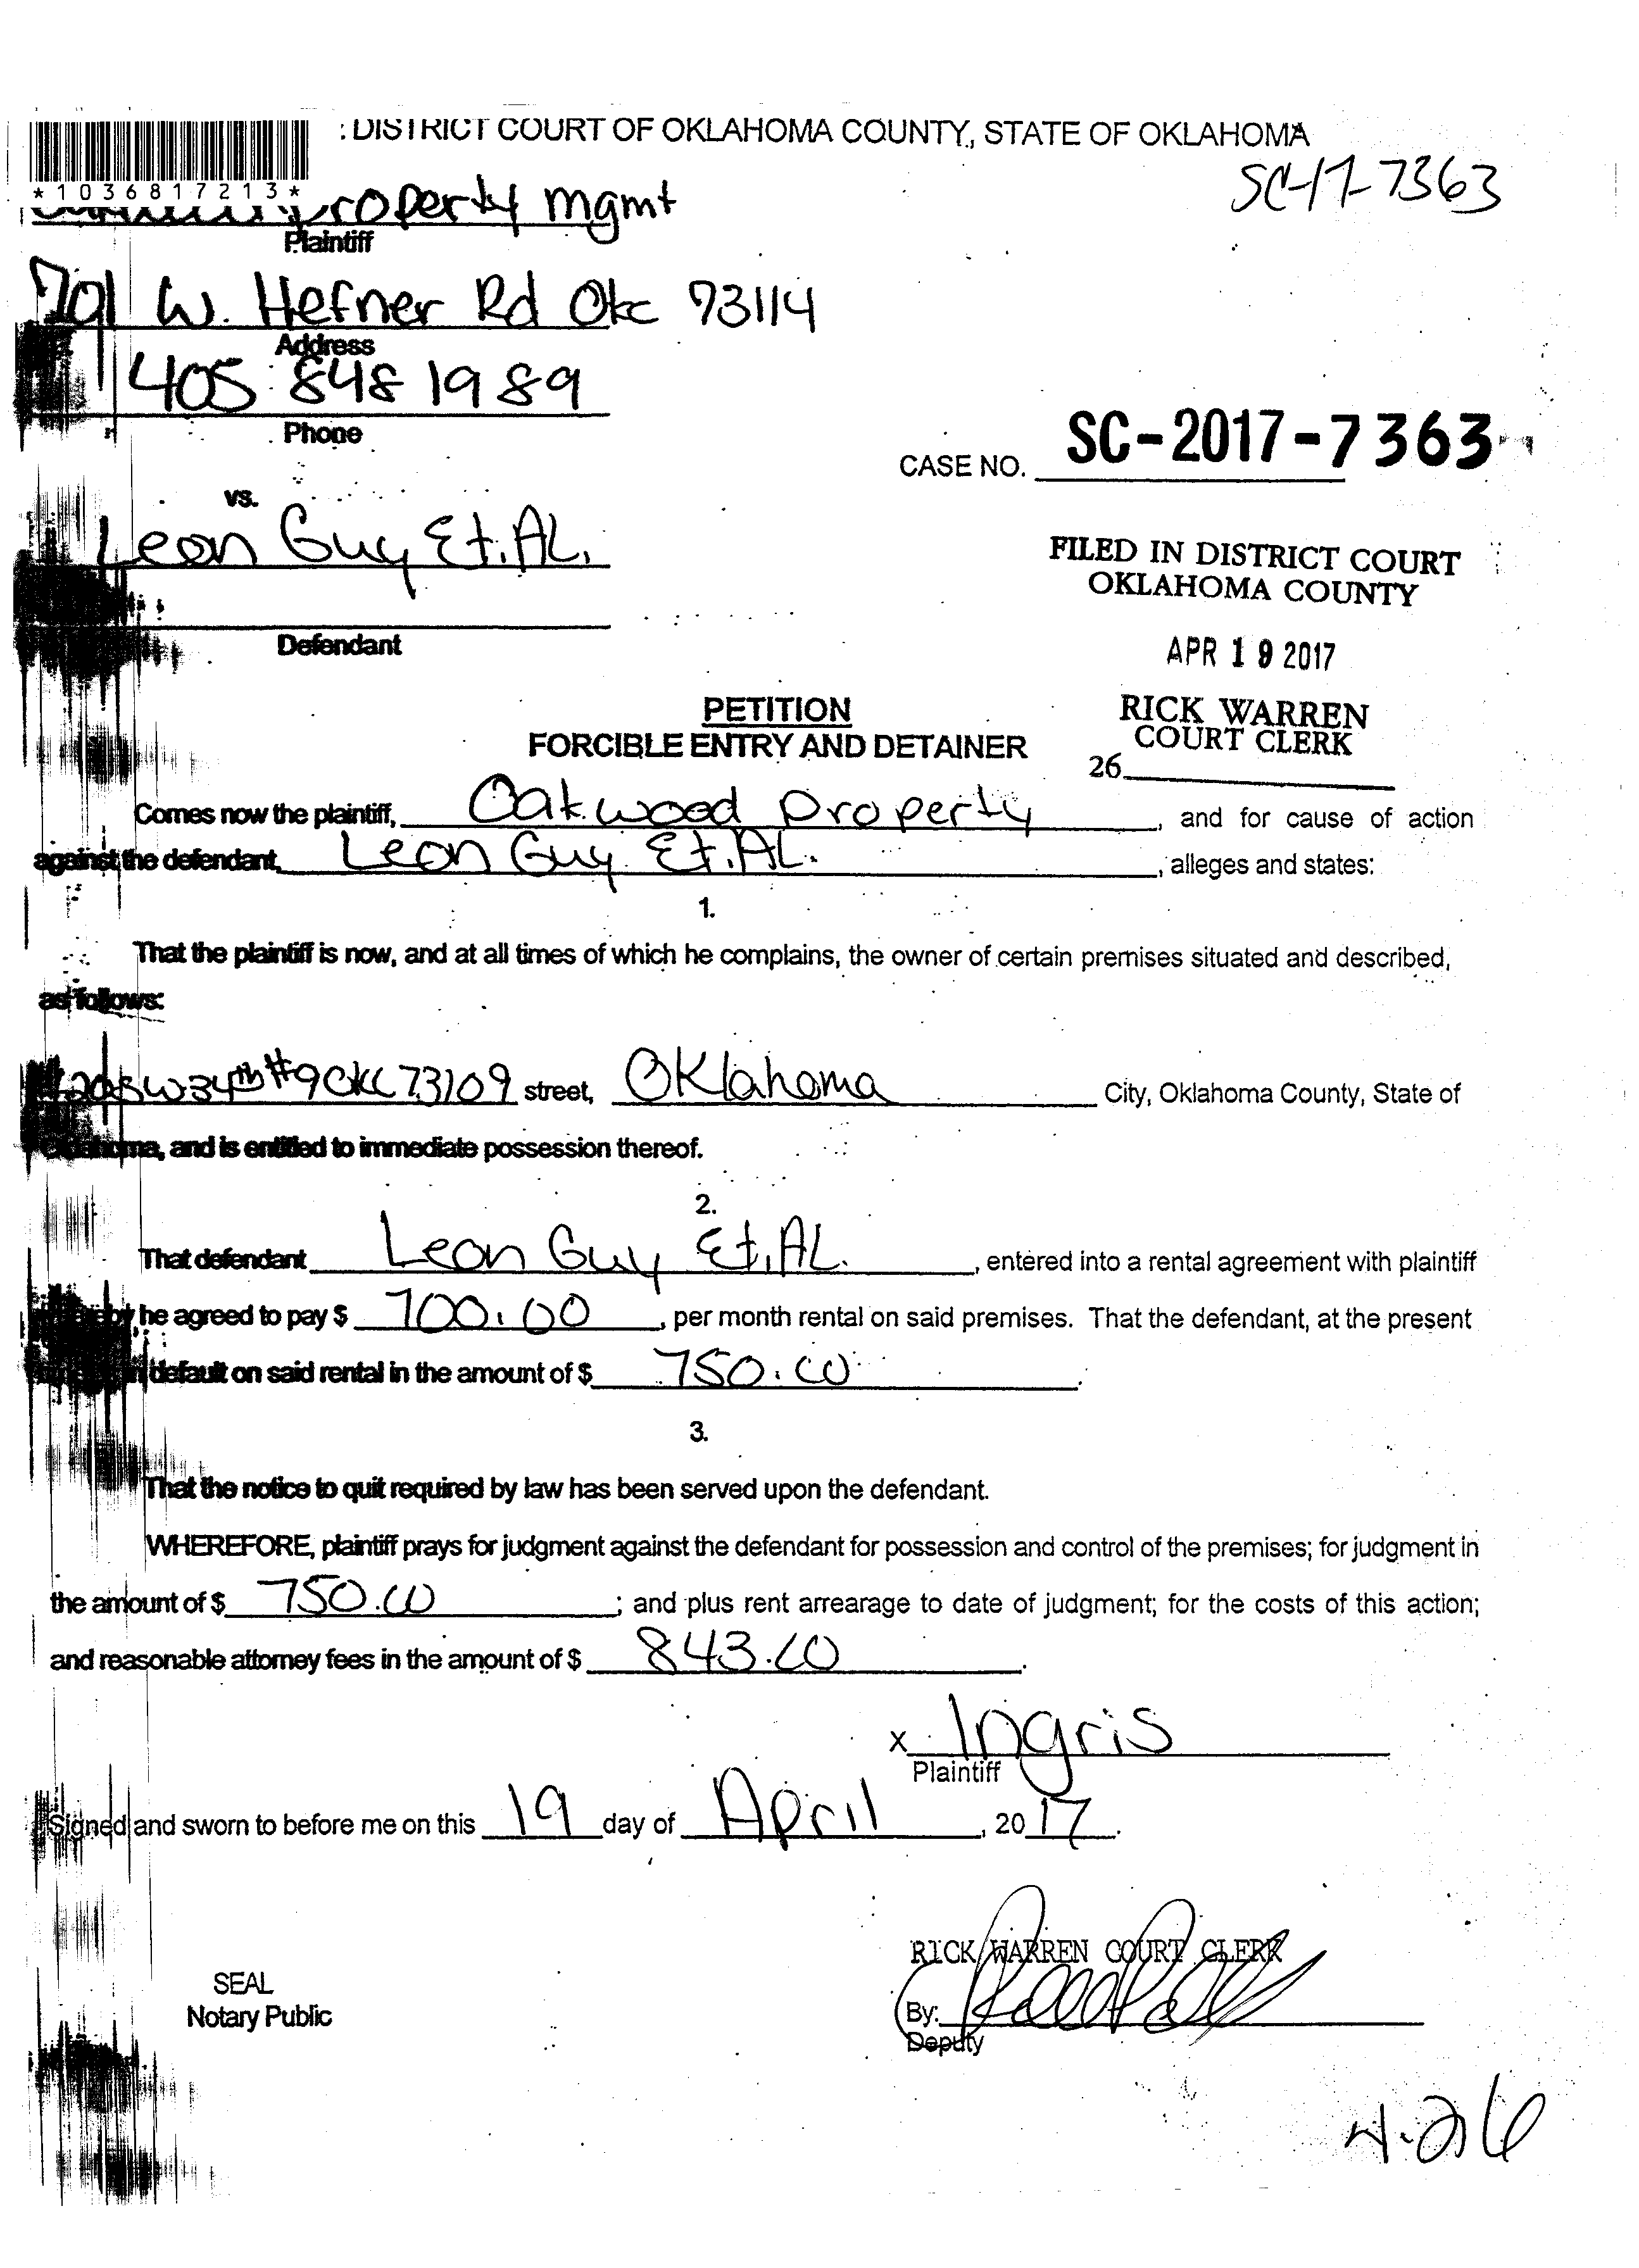 : DISTRICT COURT OF OKLAHOMA COUNTY, STATE OF OKLAHOMA
*1036817213*
SC-17-7363
Property mgmt
Plaintiff
701 W. Hefner Rd Okc 73114
Address
405 848 1989
Phone
CASE NO. SC-2017-7363
vs.
Leon Guy Et. AL.
FILED IN DISTRICT COURT
OKLAHOMA COUNTY
Defendant
APR 19 2017
PETITION
RICK WARREN
COURT CLERK
FORCIBLE ENTRY AND DETAINER
26
Comes now the plaintiff, Oakwood Property, and for cause of action
against the defendant, Leon Guy Et. AL., alleges and states:
1.
That the plaintiff is now, and at all times of which he complains, the owner of certain premises situated and described,
as follows:
SW 34th #9 OKC 73109 street, Oklahoma City, Oklahoma County, State of
Oklahoma, and is entitled to immediate possession thereof.
2.
That defendant Leon Guy Et. AL., entered into a rental agreement with plaintiff
he agreed to pay $ 700.00, per month rental on said premises. That the defendant, at the present
in default on said rental in the amount of $ 750.00.
3.
That the notice to quit required by law has been served upon the defendant.
WHEREFORE, plaintiff prays for judgment against the defendant for possession and control of the premises; for judgment in
the amount of $ 750.00; and plus rent arrearage to date of judgment; for the costs of this action;
and reasonable attorney fees in the amount of $ 843.00.
X Ingris
Plaintiff
Signed and sworn to before me on this 19 day of April, 2017.
RICK WARREN COURT CLERK
SEAL
Notary Public
By:
Deputy
4-26